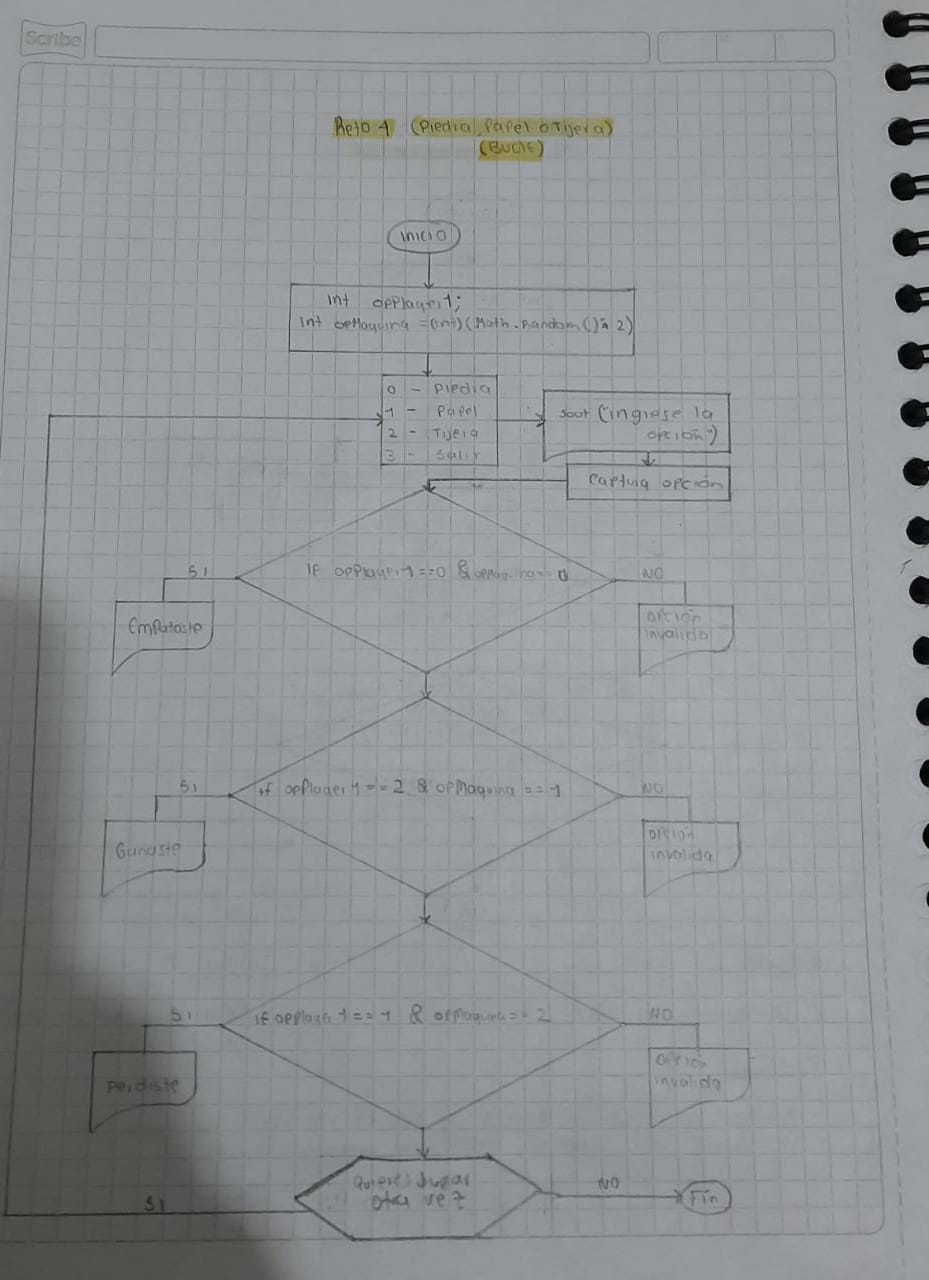 Scribe
Reto 1 (Piedra, Papel o Tijera)
(BUCLE)
inicio
Int opPlayer1;
Int opMaquina =(int)(Math.Random()* 2)
0 - Piedra
1 - Papel
2 - Tijera
3 - Salir
sout ("ingrese la
opción")
Captura opción
If opPlayer1==0 & opMaquina==0
SI
NO
Empataste
opción
invalida
if opPlayer1 == 2 & opMaquina == 1
SI
NO
Ganaste
opción
invalida
if opPlayer1 == 1 & opMaquina == 2
SI
NO
Perdiste
opción
invalida
Quieres Jugar
otra vez
SI
NO
Fin